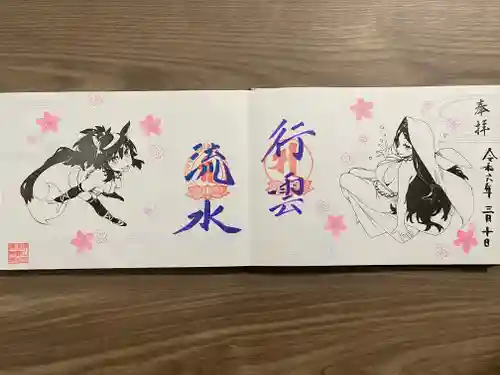 奉拝
令和六年 三月十日
行雲
流水